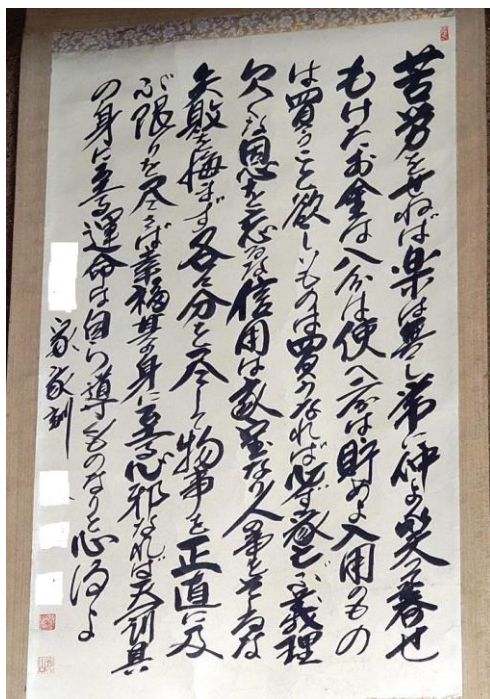 苦労をせねば楽は無し常に仲よく笑って暮せ
もけたお金は八分は使へ二分は貯めよ入用のもの
は買うこと欲しいものは買うなれば必ず家亡ぶ義理
欠くな恩を忘るな信用は家宝なり人の事をそしるな
失敗を悔まず各々分を尽して物事を正直に及
ぶ限りを尽さば幸福其の身に至る心邪なれば天罰其
の身に至る運命は自ら導くものなりと心得よ
家家訓